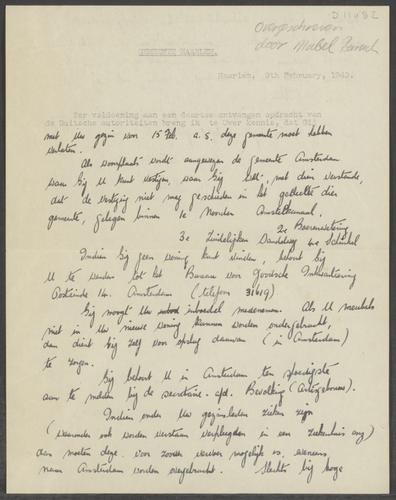 D 11082
Overgeschreven
door Mabel
GEMEENTE HAARLEM.
Haarlem, 9th February, 1943.
Ter voldoening aan een daartoe ontvangen opdracht van
de Duitsche autoriteiten breng ik te Uwer kennis, dat Gij
met Uw gezin voor 15 Feb. a.s. deze gemeente moet hebben
verlaten.
Als woonplaats wordt aangewezen de gemeente Amsterdam
waar Gij U kunt vestigen, waar Gij wilt, met dien verstande,
dat de vestiging niet mag geschieden in het gedeelte dier
gemeente, gelegen binnen 1e Noorder Amstelkanaal.
2e Boerenwetering
3e Zuidelijken Wandelweg 4e Schinkel
Indien Gij geen woning kunt vinden, behoort Gij
U te wenden tot het Bureau voor Joodsche Inkwartiering
Oosteinde 14. Amsterdam (telefoon 31419)
Gij moogt Uw inboedel meenemen. Als U meubels
niet in Uw nieuwe woning kunnen worden ondergebracht,
dan dient Gij zelf voor opslag daarvan (in Amsterdam)
te zorgen.
Gij behoort U in Amsterdam ten spoedigste
aan te melden bij de secretarie afd. Bevolking
Indien onder Uw gezinsleden zieken zijn
(waaronder ook worden verstaan verpleegden in een ziekenhuis enz)
dan moeten deze voor zoover vervoer mogelijk is, eveneens
naar Amsterdam worden overgebracht. Slechts bij hooge